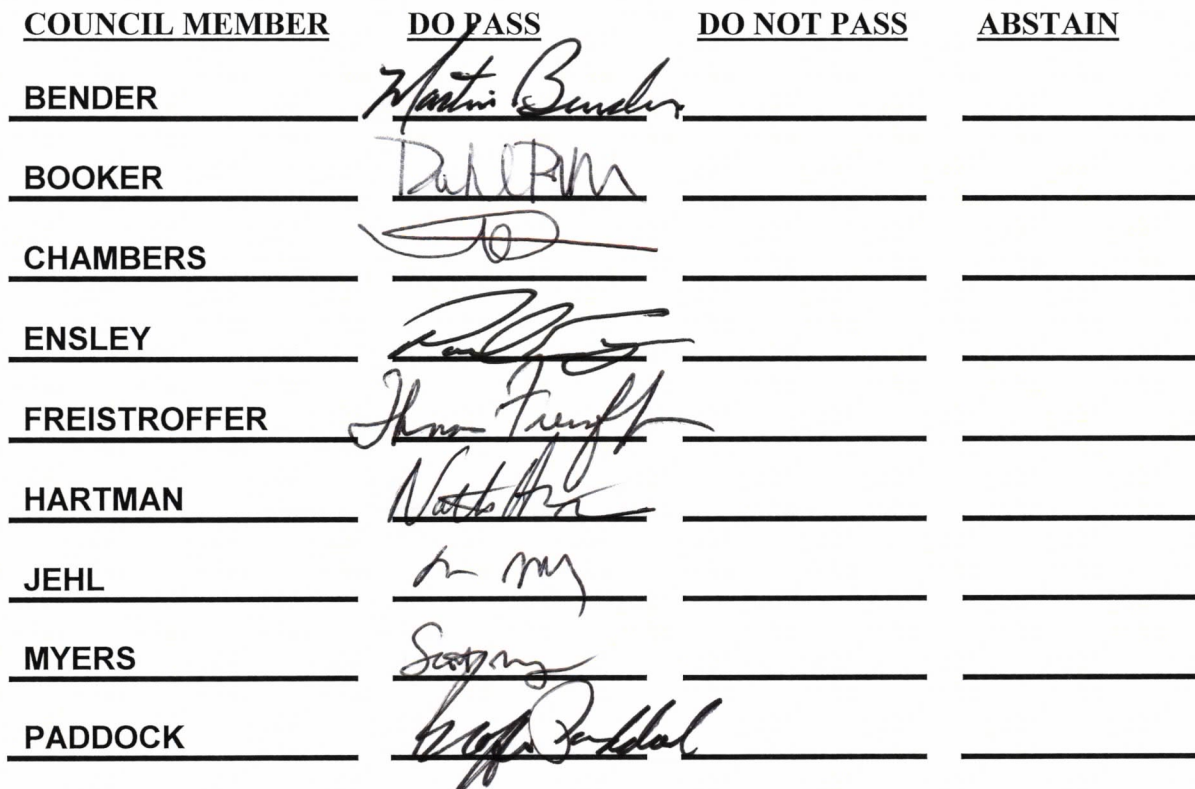 COUNCIL MEMBER DO PASS DO NOT PASS ABSTAIN
BENDER Martin Bender
BOOKER
CHAMBERS
ENSLEY
FREISTROFFER
HARTMAN
JEHL
MYERS
PADDOCK Paddock